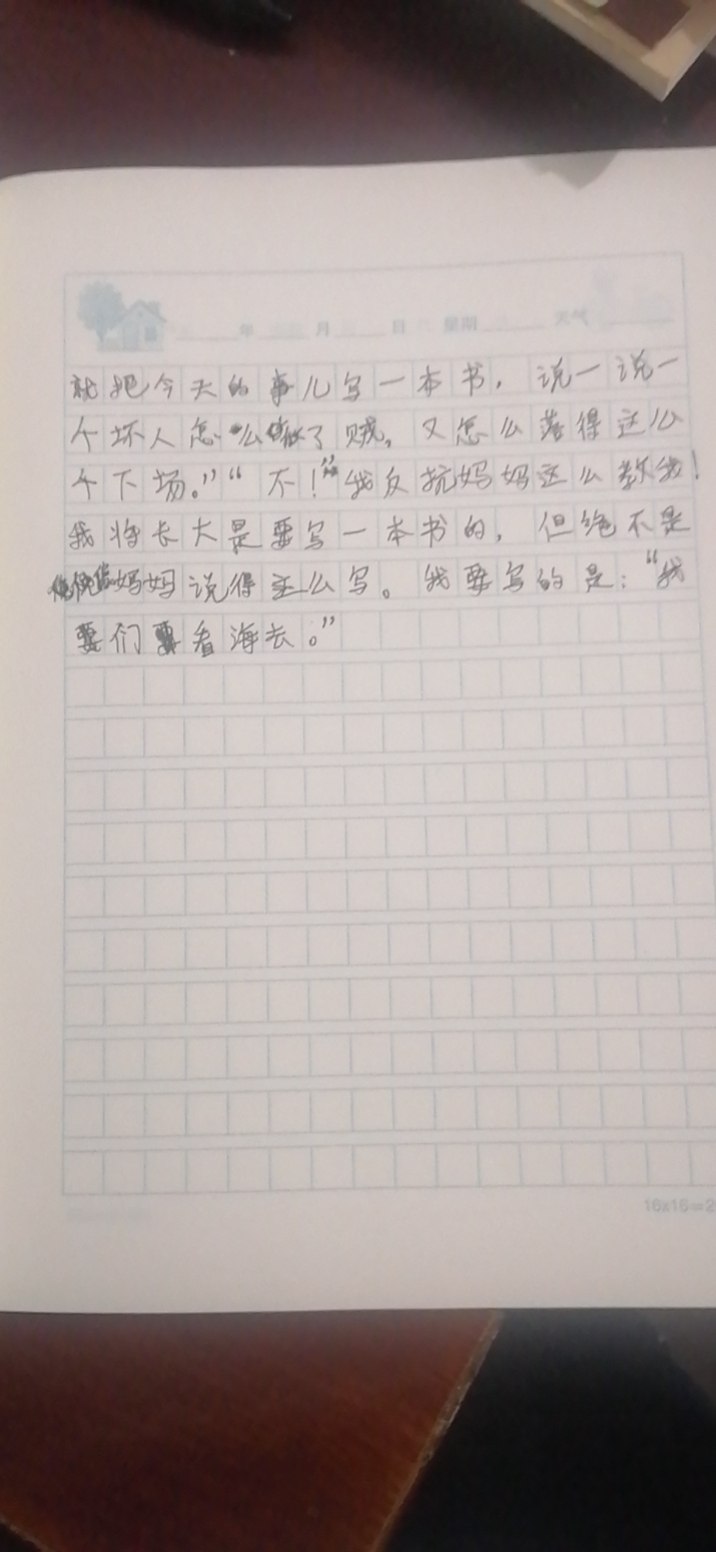 年 月 日 星期 天气
就把今天的事儿写一本书，说一说一
个坏人怎么做了贼，又怎么落得这么
个下场。”“不！”我反抗妈妈这么教我！
我将长大是要写一本书的，但绝不是
妈妈说得这么写。我要写的是：“我
们要看海去。”
16x16=2